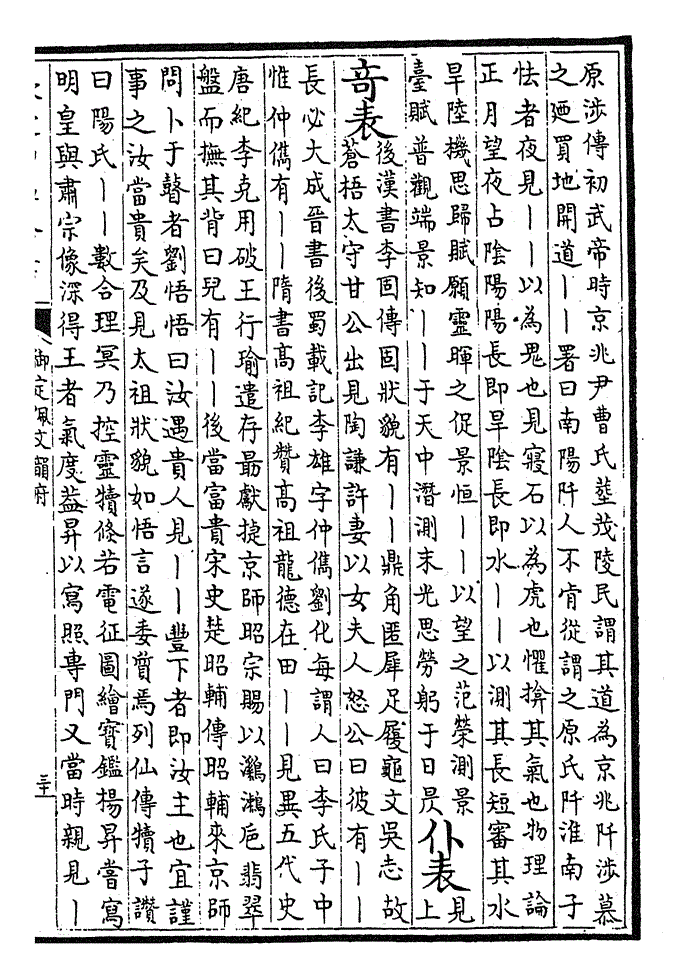 原涉傳初武帝時京兆尹曹氏塟茂陵民謂其道為京兆阡涉慕
之廼買地開道丨丨署曰南陽阡人不肯從謂之原氏阡淮南子
怯者夜見丨丨以為鬼也見寢石以為虎也懼揜其氣也物理論
正月望夜占陰陽陽長即旱陰長即水丨丨以測其長短審其水
旱陸機思歸賦願靈暉之促景恒丨丨以望之范榮測景
臺賦普觀端景知丨丨于天中潛測末光思勞躬于日昃
仆表
見
上
奇表
後漢書李固傳固狀貌有丨丨鼎角匿犀足履龜文吳志故
蒼梧太守甘公出見陶謙許妻以女夫人怒公曰彼有丨丨
長必大成晉書後蜀載記李雄字仲儁劉化每謂人曰李氏子中
惟仲儁有丨丨隋書髙祖紀贊髙祖龍德在田丨丨見異五代史
唐紀李克用破王行瑜遣存朂獻捷京師昭宗賜以鸂鶒巵翡翠
盤而撫其背曰兒有丨丨後當富貴宋史楚昭輔傳昭輔來京師
問卜于瞽者劉悟悟曰汝遇貴人見丨丨豐下者即汝主也宜謹
事之汝當貴矣及見太祖狀貌如悟言遂委質焉列仙傳犢子讚
曰陽氏丨丨數合理冥乃控靈犢倏若電征圖繪寳鑑楊昇嘗寫
明皇與肅宗像深得王者氣度益昇以寫照專門又當時親見丨
御定佩文韻府